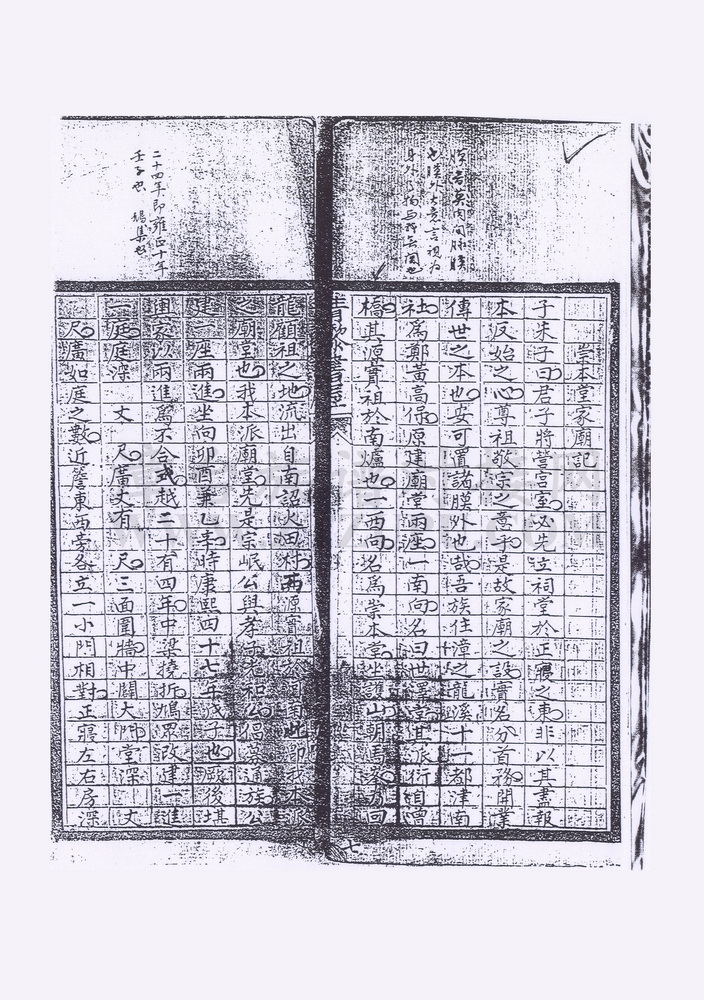 崇本堂家廟記
子朱子曰君子將營宮室必先立祠堂於正寢之東非以其盡報
本反始之心尊祖敬宗之意乎是故家廟之設實名分首務開業
傳世之本也安可謂諸膜外也哉吾族住漳之龍溪十一都津南
社為鄭黃高保原建廟堂兩座一南向名曰世 堂其派衍自
橋其源實祖於南爐也一西向名為崇本堂坐 山朝馬 為回
龍顧祖之地流出自南詔火田村西源實祖於 此即我本派
之廟堂也我本派廟堂先是宗岷公與孝 老和公倡募通族公
建一座兩進坐向卯酉兼乙辛時康熙四十七年戊子也厥後堪
輿家以兩進為不合式越二十有四年中梁撓折鳩眾改建一進
一庭庭深 丈 尺廣丈有 尺三面圍牆中闢大門堂深 丈
一尺廣如庭之數近簷東西旁各立一小門相對正寢左右房深
膜者英肉間脈膜
也膜外大意言視為
身外之物與我無關也
二十四年即雍正十年
壬子也 楊集 
七